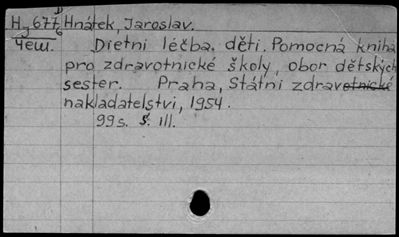 D
H 677 Hnárek, Jaroslav.
J 6
Чеш. Dietní léčba. dětí. Pomocná kniha
pro zdravotnické školy, obor dětských
sester. Praha, Státní zdravotnické
nakladatelství, 1954.
99 s. S. Ill.